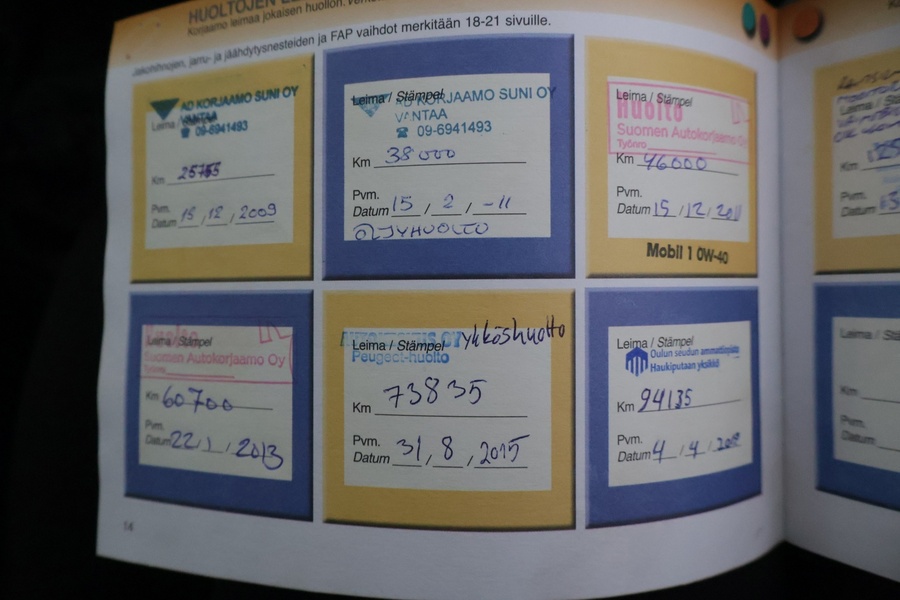 HUOLTOJEN
Korjaamo leimaa jokaisen huollon.
Jakohihnojen, jarru- ja jäähdytysnesteiden ja FAP vaihdot merkitään 18-21 sivuille.
AD KORJAAMO SUNI OY
Leima / VANTAA
☎ 09-6941493
Km 25755
Pvm.
Datum 15 / 12 / 2009
Leima / Stämpel
AD KORJAAMO SUNI OY
VANTAA
☎ 09-6941493
Km 38000
Pvm.
Datum 15 / 2 / -11
ÖLJYHUOLTO
Leima / Stämpel
Huolto
Suomen Autokorjaamo Oy
Työnro
Km 46000
Pvm.
Datum 15 / 12 / 2011
Mobil 1 0W-40
Huolto
Leima / Stämpel
Suomen Autokorjaamo Oy
Km 60700
Pvm.
Datum 22 / 1 / 2013
Leima / Stämpel ykköshuolto
Peugeot-huolto
Km 73835
Pvm.
Datum 31 / 8 / 2015
Leima / Stämpel
Oulun seudun ammattiopisto
Haukiputaan yksikkö
Km 94135
Pvm.
Datum 4 / 4 /
14
Km
Pvm.
Datum
Leima / Stämpel
Km
Pvm.
Datum